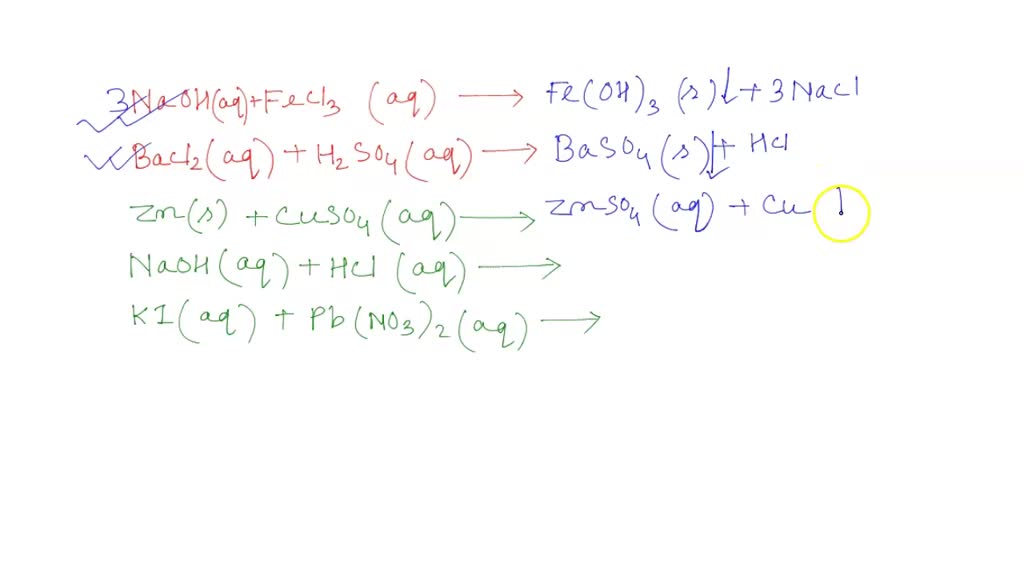 3NaOH(aq)+FeCl3 (aq) → Fe(OH)3 (s)↓ + 3NaCl
BaCl2(aq) + H2SO4(aq) → BaSO4(s)↓ + HCl
Zn(s) + CuSO4(aq) → ZnSO4(aq) + Cu ↓
NaOH(aq) + HCl (aq) →
KI(aq) + Pb(NO3)2(aq) →